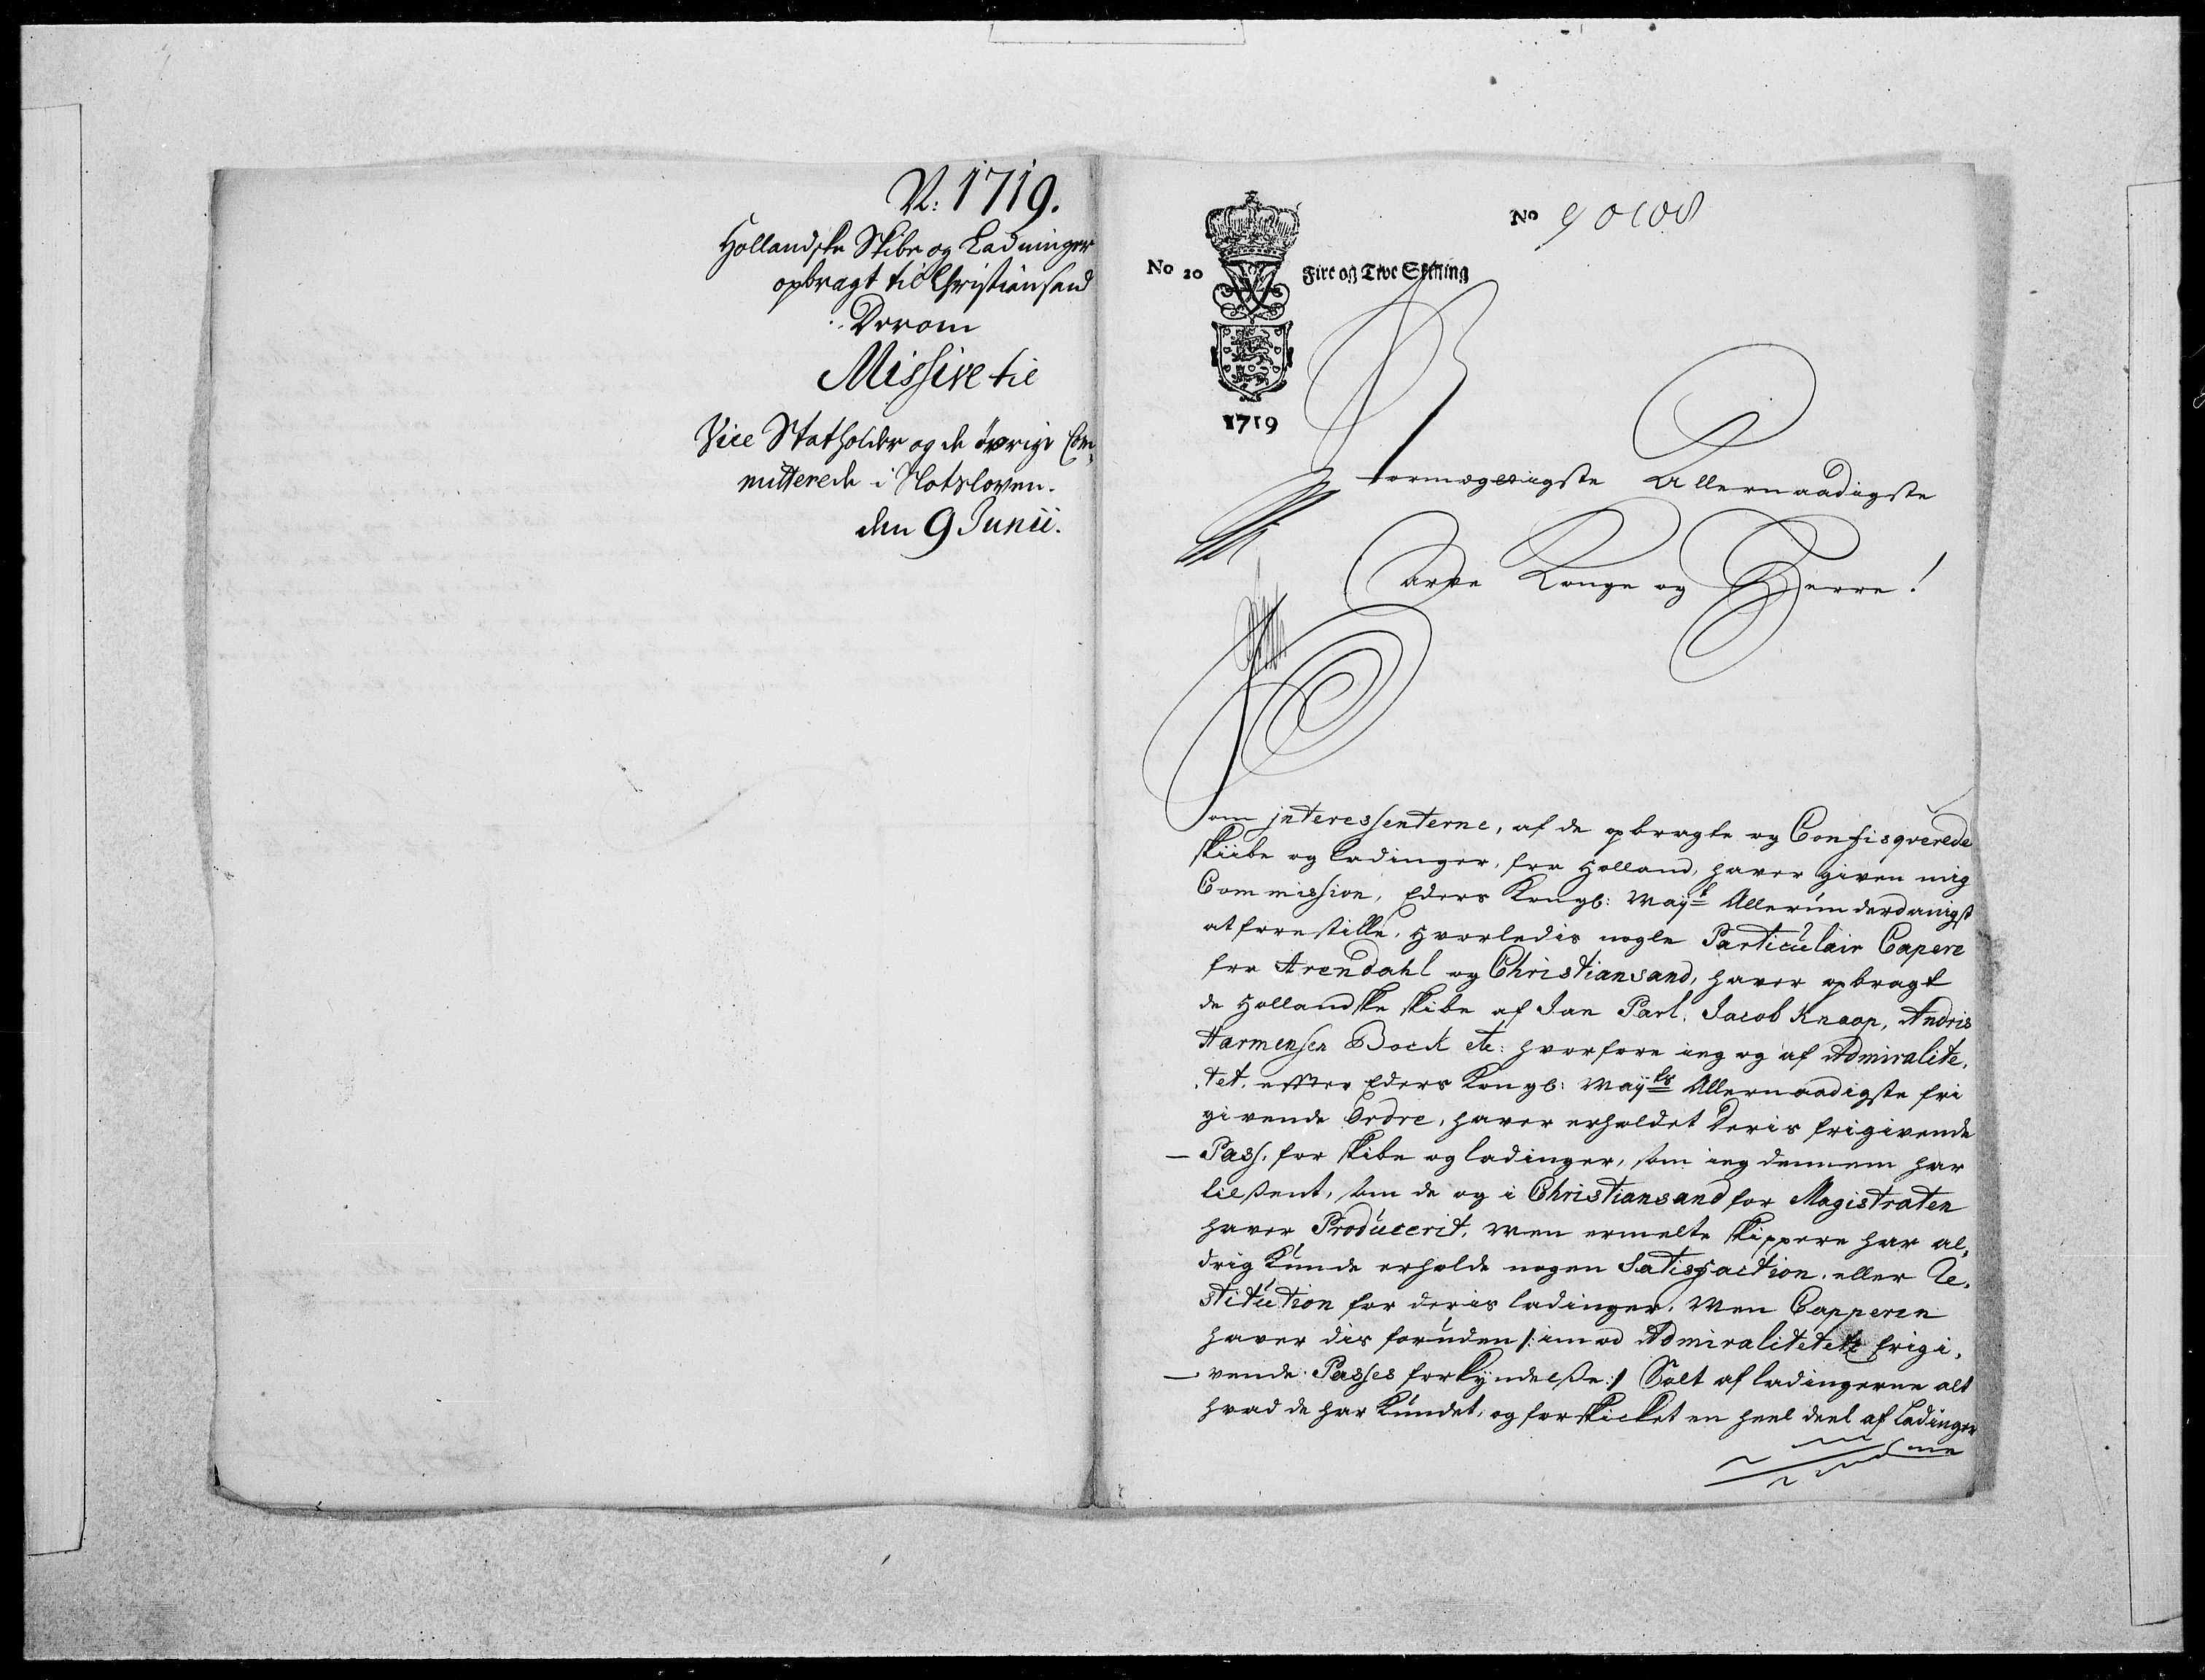 N: 1719.
Hollandske Skibe og Ladninger
opbragt til Christiansand
Derom
Missive til
Vice Statholder og de øvrige Com,
mitterede i Slotsloven.
den 9 Junii.
No
No 20
Fire og Tive Skilling
1719
Stormægtigste Allernaadigste
Arve Konge og Herre!
Som jnteressenterne, af de opbragte og Confisqverede
skiibe og ladinger, fra Holland, haver given mig
Commission, Eders Kongl: Mayt Allerunderdanigst
at forestille, hvorledis nogle Particulair Capere
fra Arendahl og Christiansand, haver opbragt
de Hollandske skibe af Jan Parl, Jacob Knaap, Andris
Harmensen Bock etc: hvorfore ieg og af Admiralite,
tet, effter Eders Kongl: Mayts Allernaadigste fri
givende Ordre, haver erholdet deris frigivende
Pass, for skibe og ladinger, som ieg dennem har
tilsent, som de og i Christiansand for Magistraten
haver Producerit, Men ermelte skippere har al,
drig kunde erholde nogen Satisfaction, eller Re,
stitution for deris ladinger, Men Capperen
haver dis foruden /: imod Admiralitetets frigi,
vende Passes forkyndelse :/ Solt af ladingerne alt
hvad de har kundet, og forskicket en heel deel af ladinger
ne